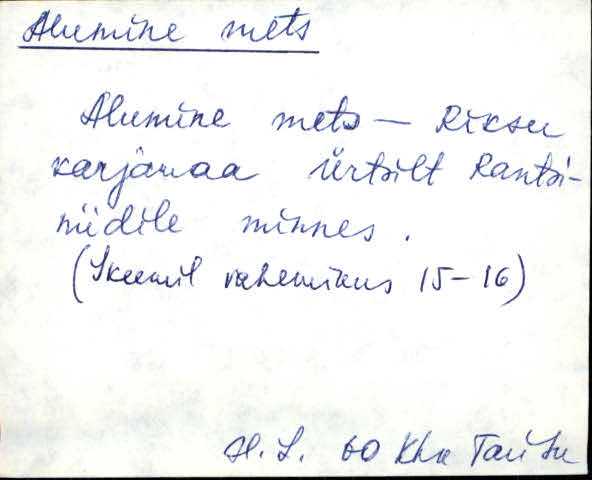 Alumine mets
Alumine mets — Riksu
karjamaa Ürtsilt Rantsi-
niidile minnes.
(Skeemil vahemikus 15-16)
H. S. 60 Khk